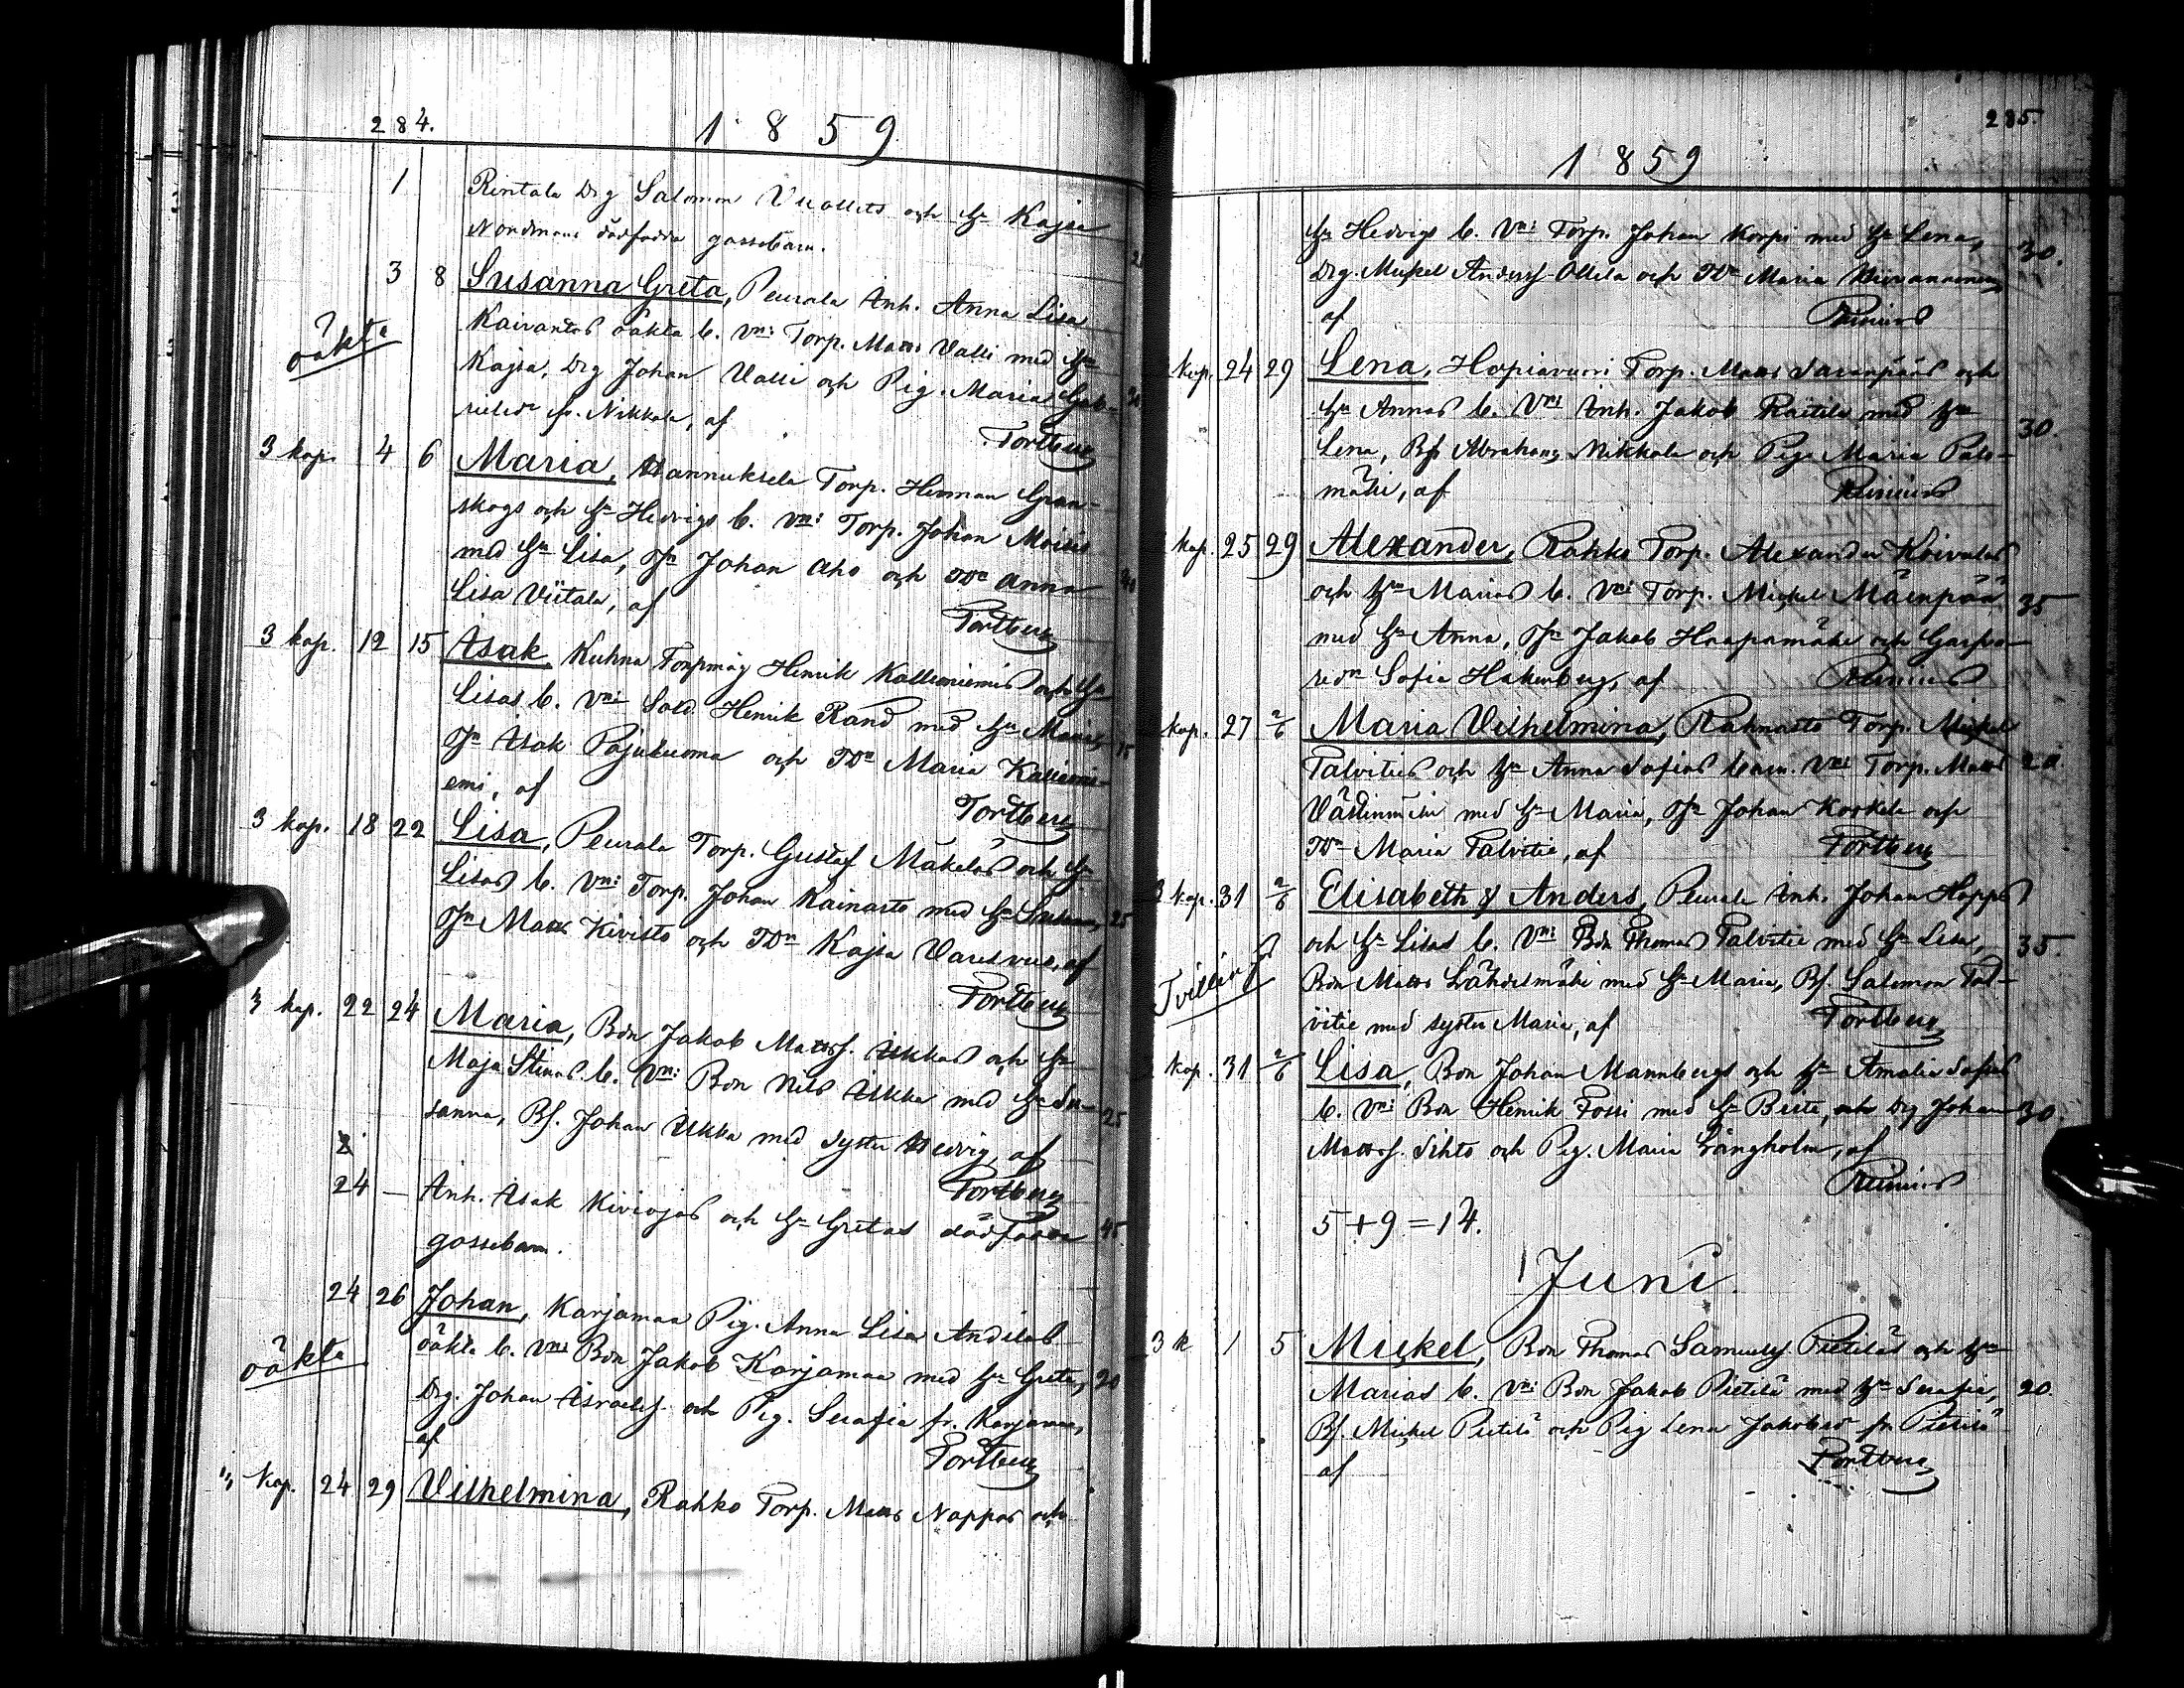 284.
1859.
1 Rintala Drg Salomon och Hu Kajsa
Nordmans dödfödda gossebarn.
3 8 Susanna Greta, Peurala Inh. Anna Lisa
oäkta
Kaivantos oäkta b. Vn: Torp. Matts Valli med Hu
Kajsa, Drg Johan Valli och Pig. Maria Gab-
rielsdr fr. Nikkola, af
Tortberg
3 kop. 4 6 Maria, Hannuksela Torp. Herman Gran-
skogs och Hu Hedvigs b. Vn: Torp. Johan Moisis
med Hu Lisa, Jn Johan Aho och TDr Anna 40
Lisa Viitala, af
Tortberg
3 kop. 12 15 Isak, Kuhna Torpmåg Henrik Kallioniemis och Hu
Lisas b. Vn: Sold. Henrik Rand med Hu Maria,
Jn Isak Pajukuoma och TDr Maria Kallioni-
emi, af
Tortberg
3 kop. 18 22 Lisa, Peurala Torp. Gustaf Mäkeläs och Hu
Lisas b. Vn: Torp. Johan Kainasto med Hu 25
Jn Matts Kivistö och TDr Kajsa af
Tortberg
3 kop. 22 24 Maria, Bdn Jakob Mattss. Ukkas och Hu
Maja Stinas b. Vn: Bdn Nils Ukka med Hu Su- 25
sanna, Bs. Johan Ukka med Syster Hedvig, af
Tortberg
24 — Inh. Isak Kiviojas och Hu Gretas dödfödda 45
gossebarn.
24 26 Johan, Karjamaa Pig. Anna Lisa Andelas
oäkta
oäkta b. Vn: Bdn Jakob Karjamaa med Hu Greta, 20
Drg. Johan Israelss. och Pig. Serafia fr. Karjamaa,
af
Tortberg
3 kop. 24 29 Vilhelmina, Rahko Torp. Matts Nappas och
285.
1859
Hu Hedvigs b. Vn: Torp. Johan Korpi med Hu Lena, 30.
Drg. Mickel Anderss. Ollila och TDr Maria
af
kop. 24 29 Lena, Hopiavuori Torp. Matts Saranpääs och
Hu Annas b. Vn: Inh. Jakob Raitila med Hu 30.
Lena, Bs Abraham Nikkola och Pig. Maria Palo-
mäki, af
kop. 25 29 Alexander, Rahko Torp. Alexander Koivulas
och Hu Marias b. Vn: Torp. Mickel Mäenpää 35
med Hu Anna, Jn Jakob Haapamäki och Garfva-
redr Sofia Hakenberg, af
kop. 27 2/6 Maria Vilhelmina, Rahnasto Torp. Mickel
Talvities och Hu Anna Sofias barn. Vn: Torp. Matts 20.
med Hu Maria, Jn Johan Koskela och
TDr Maria Talvitie, af
Tortberg
3 kop. 31 2/6 Elisabeth & Anders, Peurala Inh. Johan Hoppes
Tvillingar
och Hu Lisas b. Vn: Bdn Thomas Talvitie med Hu Lisa, 35.
Bdn Matts Lähdesmäki med Hu Maria, Bs. Salomon Tal-
vitie med syster Maria, af
Tortberg
kop. 31 2/6 Lisa, Bdn Johan Mannbergs och Hu Amalia Sofias
b. Vn: Bdn Henrik Fossi med Hu Brita, och Drg Johan 30.
Mattss. Sihto och Pig. Maria Långholm, af
5+9=14.
Juni.
3 k 1 5 Mickel, Bdn Thomas Samuelss Pietiläs och Hu
Marias b. Vn: Bdn Jakob Pietilä med Hu Serafia, 20.
Bs. Mickel Pietilä och Pig Lena Jakobsdr fr. Pietilä
af
Tortberg